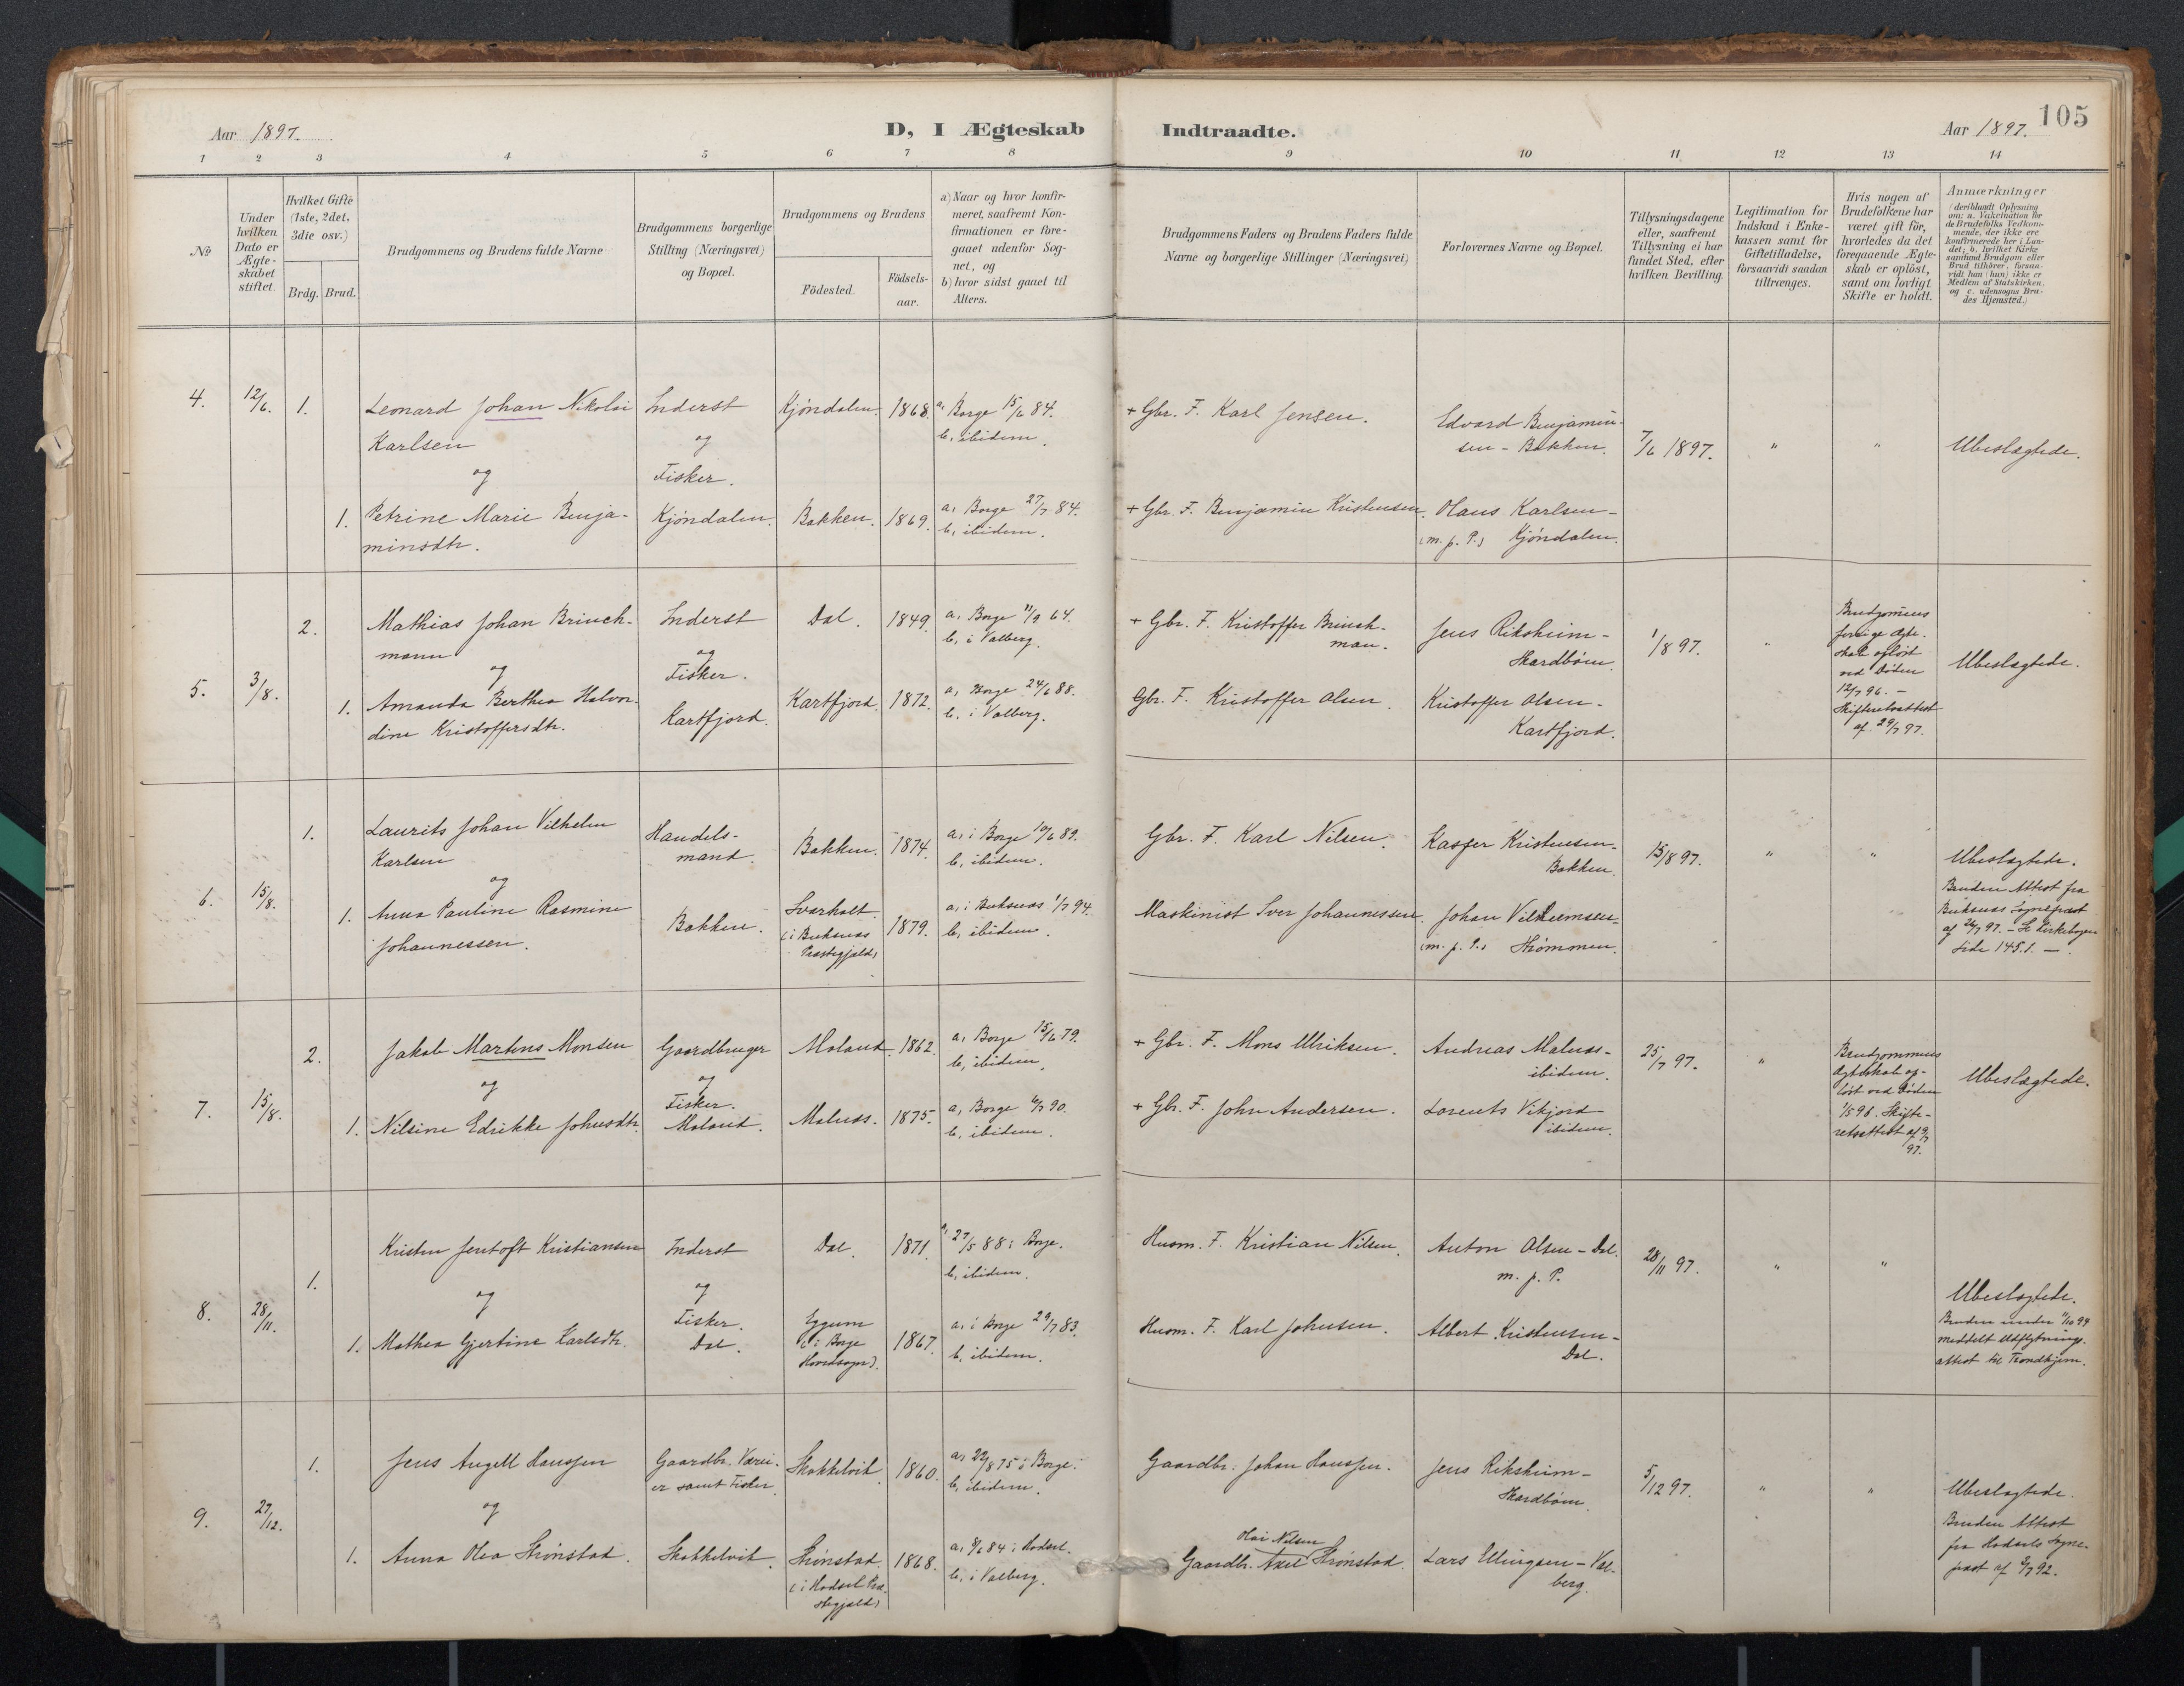 105
Aar 1897.
D, I Ægteskab
Indtraadte.
Aar 1897.
1 2 3 4 5 6 7 8 9 10 11 12 13 14
No
Under
hvilken
Dato er
Ægte-
skabet
stiftet.
Hvilket Gifte
(1ste, 2det,
3die osv.)
Brdg. Brud.
Brudgommens og Brudens fulde Navne
Brudgommens borgerlige
Stilling (Næringsvei)
og Bopæl.
Brudgommens og Brudens
Födested.
Födsels-
aar.
a) Naar og hvor konfir-
meret, saafremt Kon-
firmationen er fore-
gaaet udenfor Sog-
net, og
b) hvor sidst gaaet til
Alters.
Brudgommens Faders og Brudens Faders fulde
Navne og borgerlige Stillinger (Næringsvei)
Forlovernes Navne og Bopæl.
Tillysningsdagene
eller, saafremt
Tillysning ei har
fundet Sted, efter
hvilken Bevilling.
Legitimation for
Indskud i Enke-
kassen samt for
Giftetilladelse,
forsaavidt saadan
tiltrænges.
Hvis nogen af
Brudefolkene har
været gift för,
hvorledes da det
foregaaende Ægte-
skab er oplöst,
samt om lovligt
Skifte er holdt.
Anmærkninger
(deriblandt Oplysning
om: a. Vakcination for
de Brudefolks Vedkom-
mende, der ikke ere
konfirmerede her i Lan-
det; b. hvilket Kirke-
samfund Brudgom eller
Brud tilhörer, forsaa-
vidt han (hun) ikke er
Medlem af Statskirken,
og c. udensogns Bru-
des Hjemsted.)
4.
12/6.
1.
Leonard Johan Nikolai
Karlsen
og
1.
Petrine Marie Benja-
minsdtr.
Inderst
og
Fisker.
Kjöndalen.
Kjöndalen. 1868.
Bakken. 1869.
a, Borge 15/6 84.
b, ibidem.
a, Borge 27/7 84.
b, ibidem.
+ Gbr. F. Karl Jensen.
+ Gbr. F. Benjamin Kristensen.
Edvard Benjamin-
sen - Bakken.
Olaus Karlsen -
(m. p. P.) Kjöndalen.
7/6 1897.
"
"
Ubeslægtede.
5.
3/8.
2.
Mathias Johan Brinch-
mann
og
1.
Amanda Berthea Halvor-
dine Kristoffersdtr.
Inderst
og
Fisker.
Kartfjord.
Dal. 1849.
Kartfjord. 1872.
a, Borge 11/9 64.
b, i Valberg.
a, Borge 24/6 88.
b, i Valberg.
+ Gbr. F. Kristoffer Brinch-
man.
Gbr. F. Kristoffer Olsen.
Jens Riksheim -
Skardböen.
Kristoffer Olsen -
Kartfjord.
1/8 97.
"
Brudgommens
forrige Ægte-
skab oplöst
ved Döden
12/7 96. -
Skifteretsattest
af 29/7 97.
Ubeslægtede.
6.
15/8.
1.
Laurits Johan Vilhelm
Karlsen
og
1.
Anna Pauline Rasmine
Johannessen.
Handels-
mand.
Bakken.
Bakken. 1874.
Svarholt
(i Buksnæs
Præstegjæld) 1879.
a, i Borge 10/6 89.
b, ibidem.
a, i Buksnæs 1/7 94.
b, ibidem.
Gbr. F. Karl Nilsen.
Maskinist Iver Johannessen.
Kasper Kristensen-
Bakken.
Johan Vilhelmsen-
(m. p. P.) Strömmen.
15/8 97.
"
"
Ubeslægtede.
Bruden Attest fra
Buksnæs Sognepræst
af 26/7 97. - Se Kirkebogen
Side 145.1. -
7.
15/8.
2.
Jakob Martens Monsen
og
1.
Nilsine Edrikke Johnsdtr.
Gaardbruger
og
Fisker.
Moland.
Moland. 1862.
Malnæs. 1875.
a, Borge 15/6 79.
b, ibidem.
a, Borge 6/7 90.
b, ibidem.
+ Gbr. F. Mons Ulriksen.
+ Gbr. F. John Andersen.
Andreas Malnæs-
ibidem.
Lorents Vikjord
ibidem.
25/7 97.
"
Brudgommens
Ægteskab op-
löst ved Döden
1/5 96. Skifte-
retsattest af 9/7
97.
Ubeslægtede.
8.
28/11.
1.
Kristen Jentoft Kristiansen
og
1.
Mathea Gjertine Karlsdtr.
Inderst
og
Fisker.
Dal.
Dal. 1871.
Eggum
(i Borge
Hovedsogn). 1867.
a, 27/5 88 i Borge.
b, ibidem.
a, i Borge 29/7 83.
b, ibidem.
Husm. F. Kristian Nilsen.
Husm. F. Karl Johnsen.
Anton Olsen - Dal.
m. p. P.
Albert Kristensen -
Dal.
28/11 97.
"
"
Ubeslægtede.
Bruden under 11/10 94
meddelt Udflytnings-
attest til Trondhjem.
9.
27/12.
1.
Jens Angell Hanssen
og
1.
Anna Olea Strönstad.
Gaardbr. Værei-
er samt Fisker
Skokkelvik.
Skokkelvik 1860.
Strönstad
(i Hadsel Præ-
stegjæld) 1868.
a, 22/8 75 i Borge.
b, ibidem.
a, 8/6 84 i Hadsel.
b, i Valberg.
Gaardbr. Johan Hanssen.
Olai Nilsen
Gaardbr. Axel Strönstad.
Jens Riksheim -
Skardböen.
Lars Ellingsen - Val-
berg.
5/12 97.
"
"
Ubeslægtede.
Bruden Attest
fra Hadsels Sogne-
præst af 9/7 92.